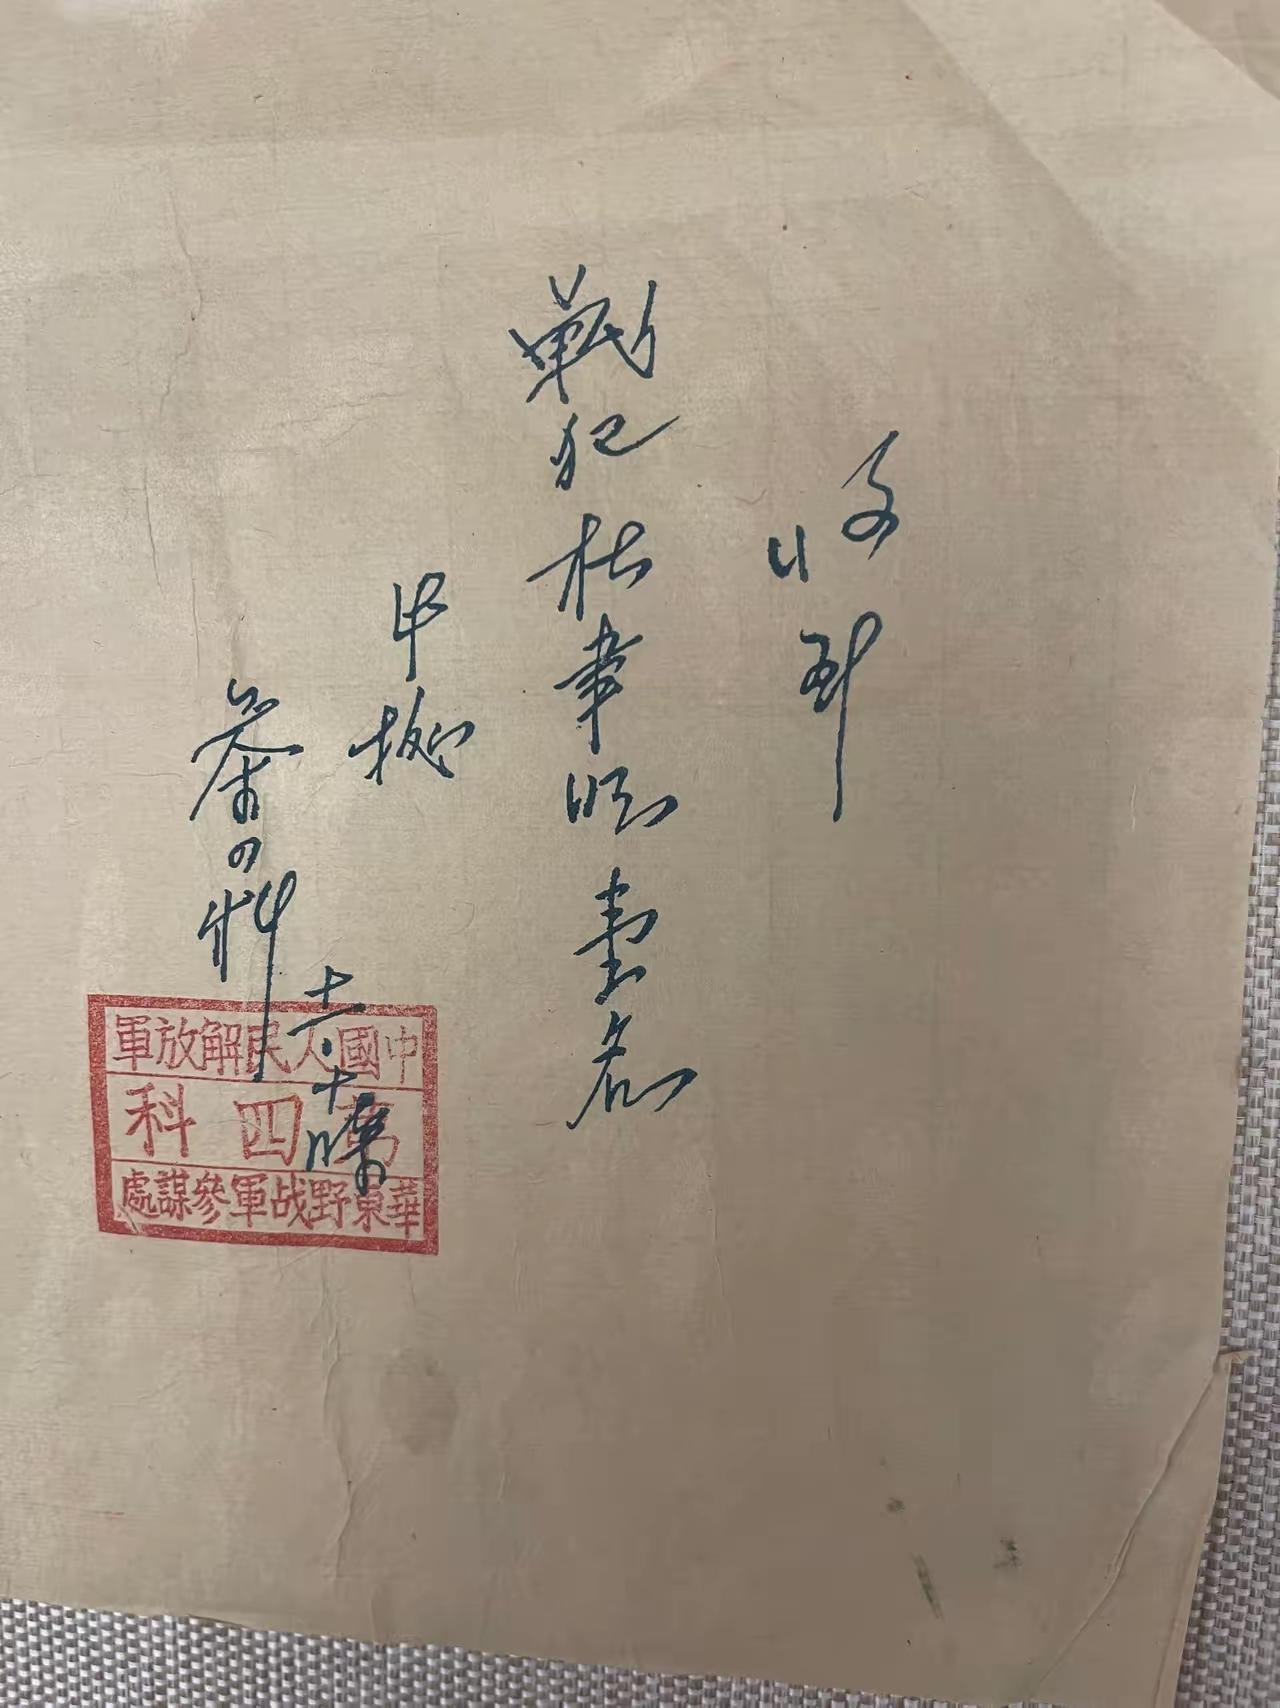 收到
戰犯杜聿明壹名
此據
參四科
十一·十
中國人民解放軍
第四科
華東野战軍參謀處